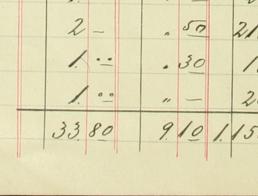 2 - . 50 21
1. .. . 30 1
1. .. " - 2
33.80 9.10 1.15